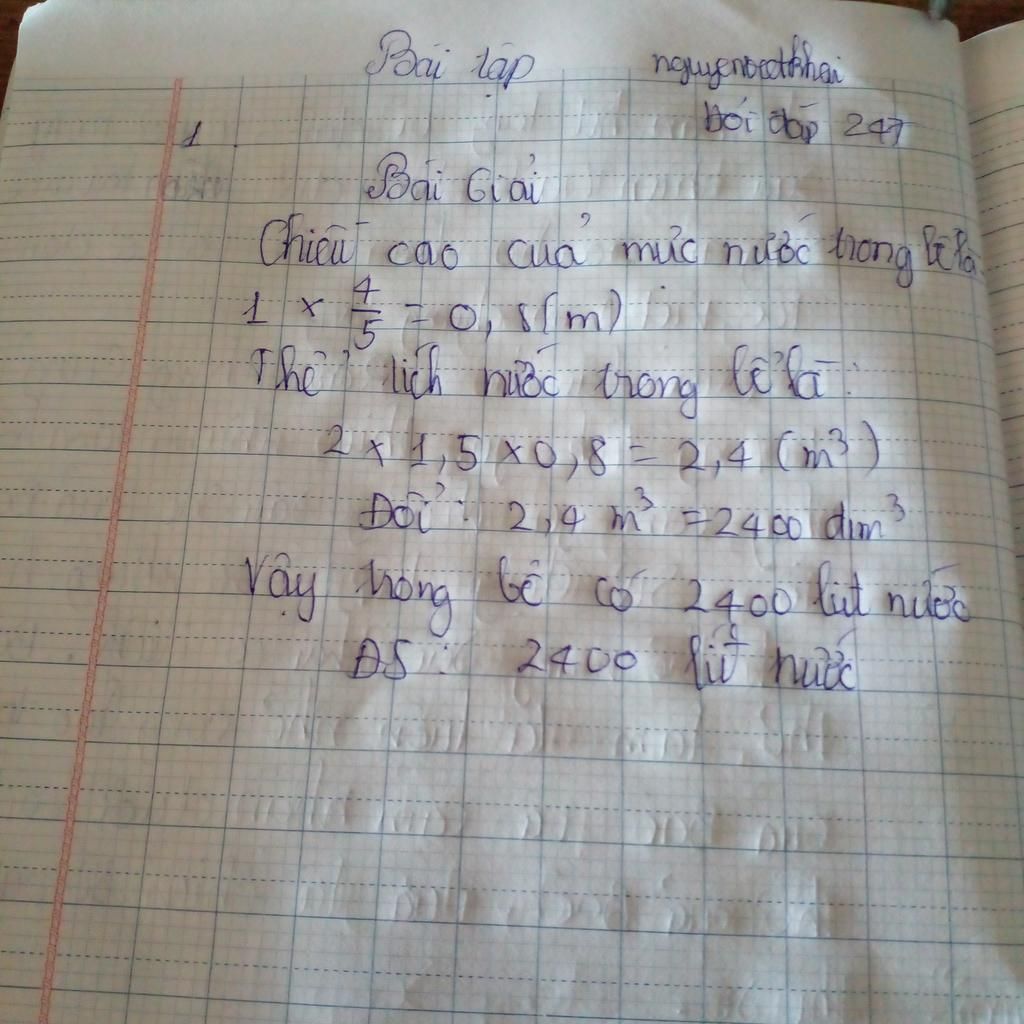 Bài tập
nguyenocthai
Đối đáp 247
1
Bài Giải
Chiều cao của mức nước trong bể là
1 x 4/5 = 0,8(m)
Thể tích nước trong bể là:
2 x 1,5 x 0,8 = 2,4 (m³)
Đổi: 2,4 m³ = 2400 dm³
Vậy trong bể có 2400 lít nước
ĐS: 2400 lít nước